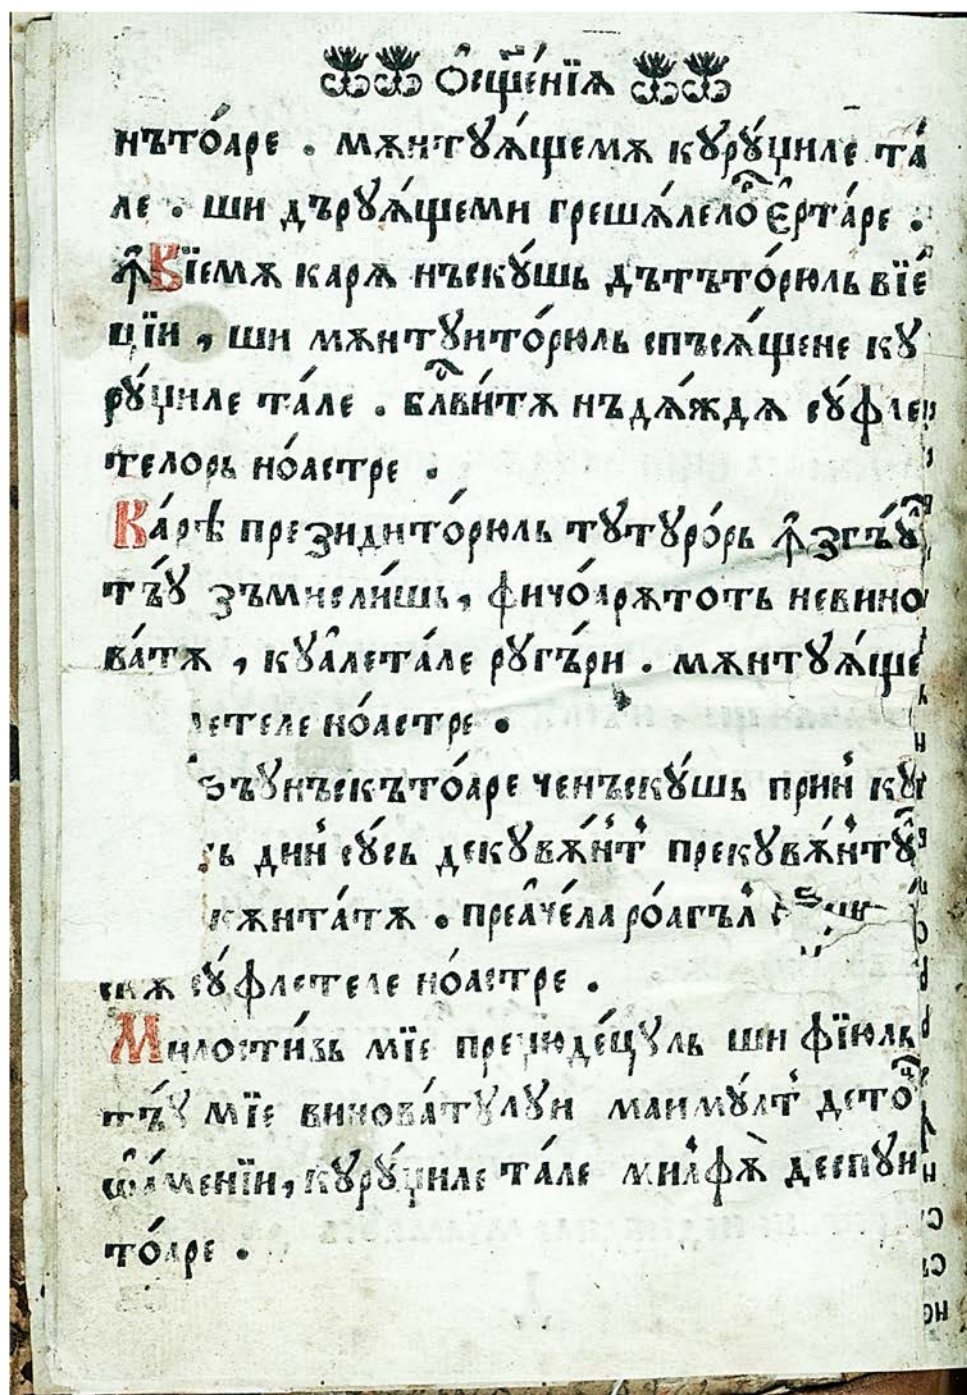 Ѻсщ҃е́нїѧ
нъто́аре . мѫнтꙋѧ́щемѫ кꙋрꙋ́џиле та́
ле . ши дърꙋѧ́щеми грешѧ́лелѻ є҆рта́ре .
ꙟ҆Вїемѫ карѧ нъскꙋ́шь дътъто́рюль вїе́
цїи , ши мѫнтꙋито́рюль спъсѧ́щене кꙋ
рꙋ́џиле та́ле . бл҃ви́тѫ нъдѧ́ждѧ сꙋ́фле
телорь но́астре .
Ка́рѣ президито́рюль тꙋтꙋро́рь ꙟ҆ згъ́ꙋ
тъ́ꙋ зъмисли́шь, фичо́арѫтоть невино
ва́тѫ , кꙋа҆лета́ле рꙋгъ́ри . мѫнтꙋѧ́ще
летеле но́астре .
ъꙋнъскъто́аре ченъскꙋ́шь прин кꙋ
сь дин сꙋ́сь декꙋвѫ́нт прекꙋвѫ́нтꙋ
кѫнта́тѫ . преа҆че́ла ро́агъл
скѫ сꙋ́флетеле но́астре .
Милости́вь мїе преџюде́цꙋль ши фїюль
тъ́ꙋ мїе винова́тꙋлꙋи маимꙋ́лт детѻ
ѡ҆а́менїи, кꙋрꙋ́џиле та́ле милфѫ̀ деспꙋи
то́аре .